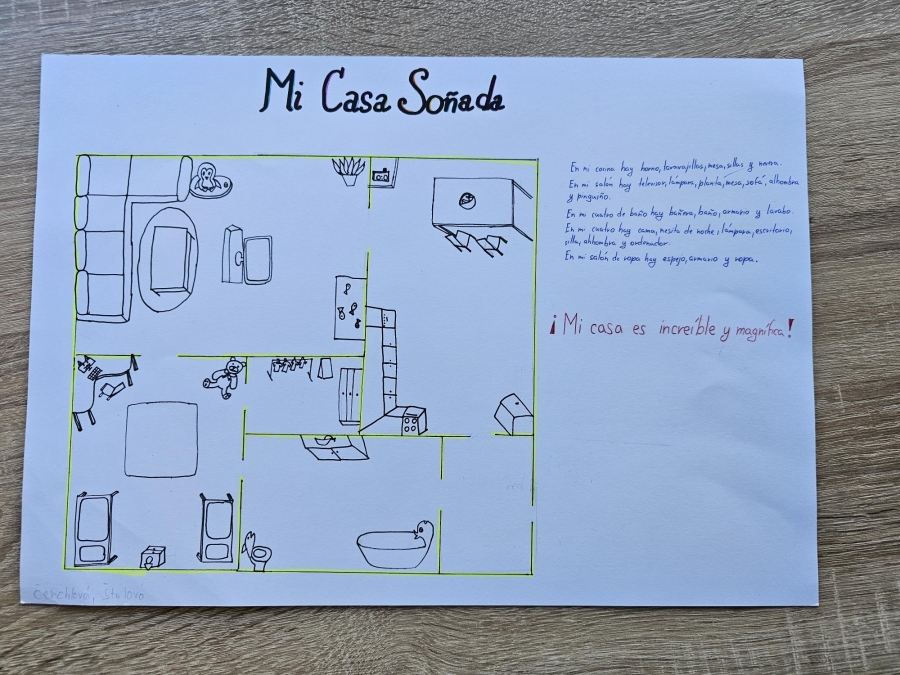 Mi Casa Soñada
En mi cocina hay horno, lavavajillas, mesa, sillas y nevera.
En mi salón hay televisor, lámpara, planta, mesa, sofá, alhombra
y pinguiño.
En mi cuatro de baño hay bañera, baño, armario y lavabo.
En mi cuatro hay cama, mesita de noche, lámpara, escritorio,
silla, alhombra y ordenador.
En mi salón de ropa hay espejo, armario y ropa.
¡Mi casa es increíble y magnífica!